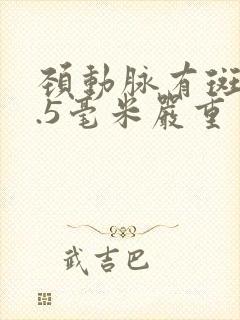 頚動脈有斑
.5毫米嚴重
武吉巴